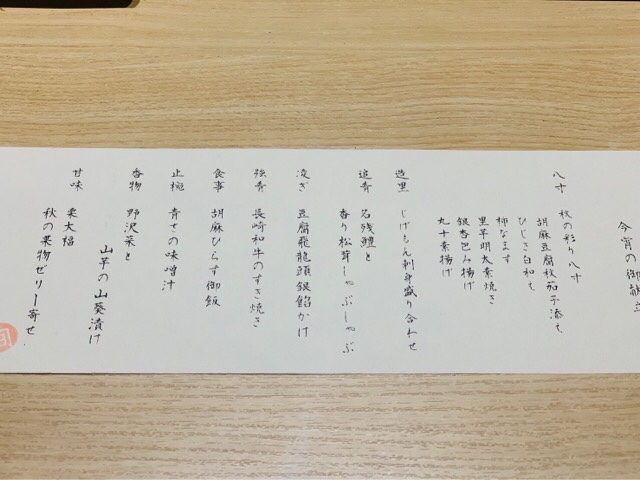 今宵の御献立
八寸 秋の彩り八寸
胡麻豆腐秋茄子添え
ひじき白和え
柿なます
里芋明太素焼き
銀杏包み揚げ
丸十素揚げ
造里 じげもん刺身盛り合わせ
追肴 名残鱧と
香り松茸しゃぶしゃぶ
凌ぎ 豆腐飛龍頭銀餡かけ
強肴 長崎和牛のすき焼き
食事 胡麻ひらす御飯
止椀 青さの味噌汁
香物 野沢菜と
山芋の山葵漬け
甘味 栗大福
秋の果物ゼリー寄せ